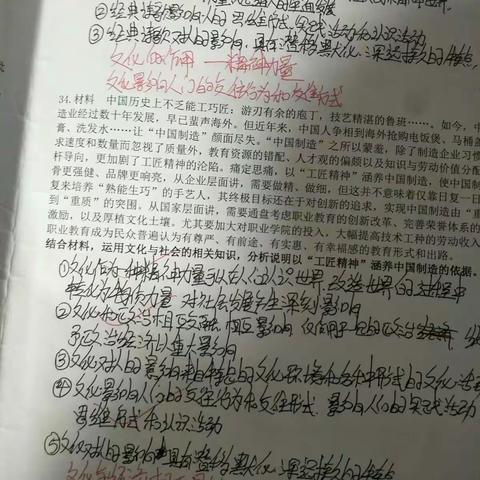 ②经典诵读影响人的思维方式、实践活动和认识活动
③经典诵读对人的影响,具有潜移默化、深远持久的特点,
文化的作用——精神力量
文化影响人们的交往行为和交往方式
34.材料 中国历史上不乏能工巧匠:游刃有余的庖丁,技艺精湛的鲁班……。如今,中
造业经过数十年发展,早已蜚声海外。但近年来,中国人争相到海外抢购电饭煲、马桶盖
膏、洗发水……让“中国制造”颜面尽失。“中国制造”之所以蒙羞,除了制造企业习惯
求速度和数量而忽视了质量外、教育资源的错配、人才观的偏颇以及知识与劳动价值分配
杆导向,更加剧了工匠精神的沦陷。痛定思痛,以“工匠精神”涵养中国制造,使中国制
骨更强健、品牌更响亮,从企业层面讲,需要做精、做细,但这并不意味着仅靠日复一日
复来培养“熟能生巧”的手艺人,其终极目标还在于对创新的追求,实现中国制造由“重
到“重质”的突围。从国家层面讲,需要通盘考虑职业教育的创新改革、完善荣誉体系的
激励,以及厚植文化土壤。尤其要加大对职业学院的投入,大幅提高技术工种的劳动收入
职业教育成为民众普遍认为有尊严、有前途、有实惠、有幸福感的教育形式和出路。
结合材料,运用文化与社会的相关知识,分析说明以“工匠精神”涵养中国制造的依据。
①文化作为一种精神力量可以在人们认识世界、改造世界的过程中
转化为物质力量,对社会发展产生深刻影响
②文化与政治相互交融,相互影响,
予政治经济以重大影响
③文化对人的影响来自特定的文化环境和各种形式的文化活
④文化影响人们的交往行为和交往方式,影响人们的实践活动
思维方式和认识活动
⑤文化对人的影响具有潜移默化、深远持久的特点